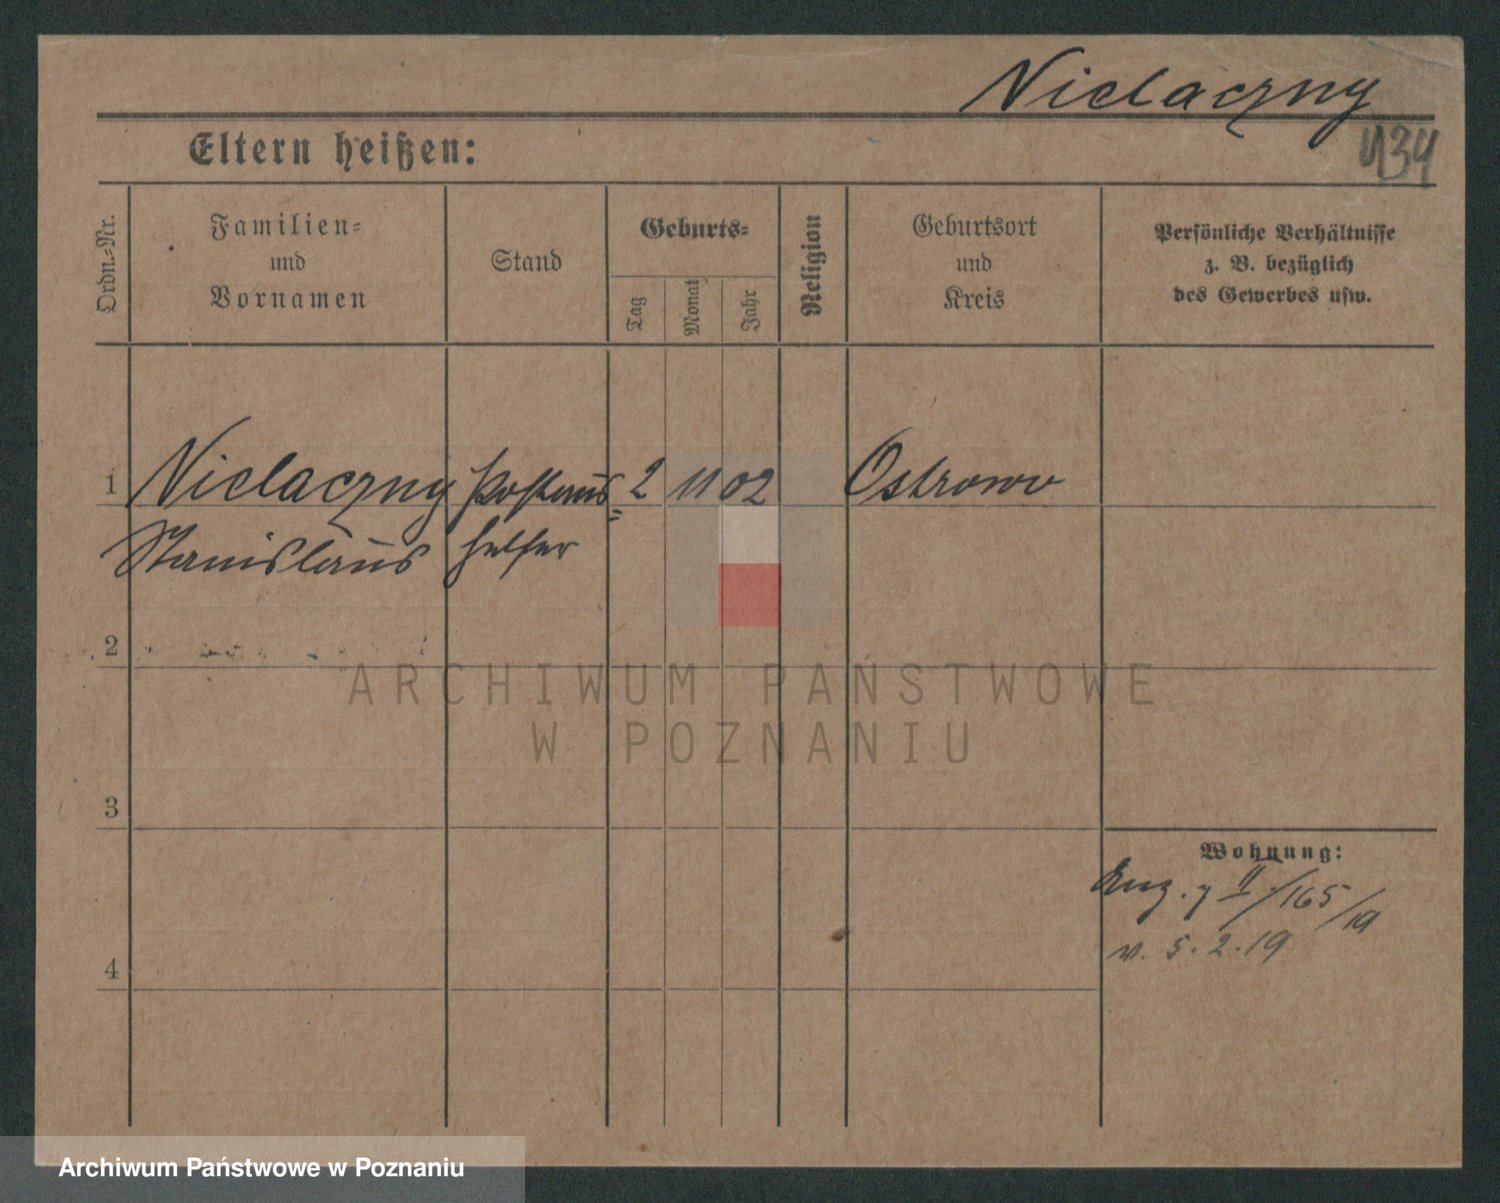 Nielaczny
434
Eltern heißen:
Ordn.-Nr.
Familien-
und
Vornamen
Stand
Geburts-
Tag
Monat
Jahr
Religion
Geburtsort
und
Kreis
Persönliche Verhältnisse
z. B. bezüglich
des Gewerbes usw.
1 Nielaczny Postaus= 2 11 02 Ostrowo
Stanislaus helfer
2
3
4
Wohnung:
II/165/19
v. 5.2.19
ARCHIWUM PAŃSTWOWE
W POZNANIU
Archiwum Państwowe w Poznaniu